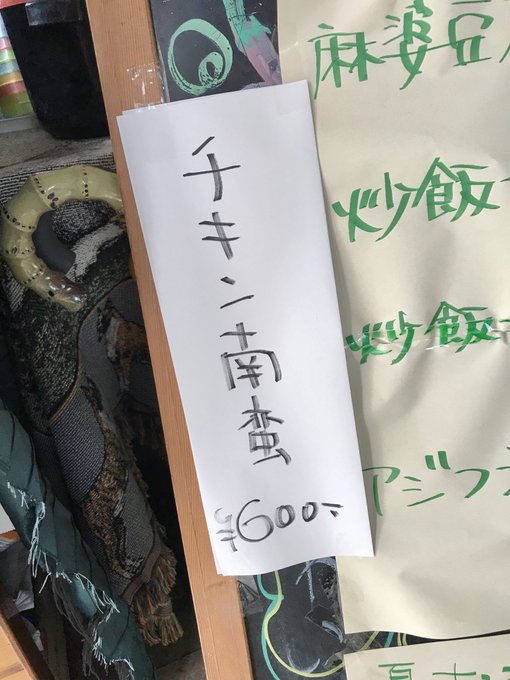 チキン南蛮
¥600-
麻婆豆
炒飯
炒飯
アジフ